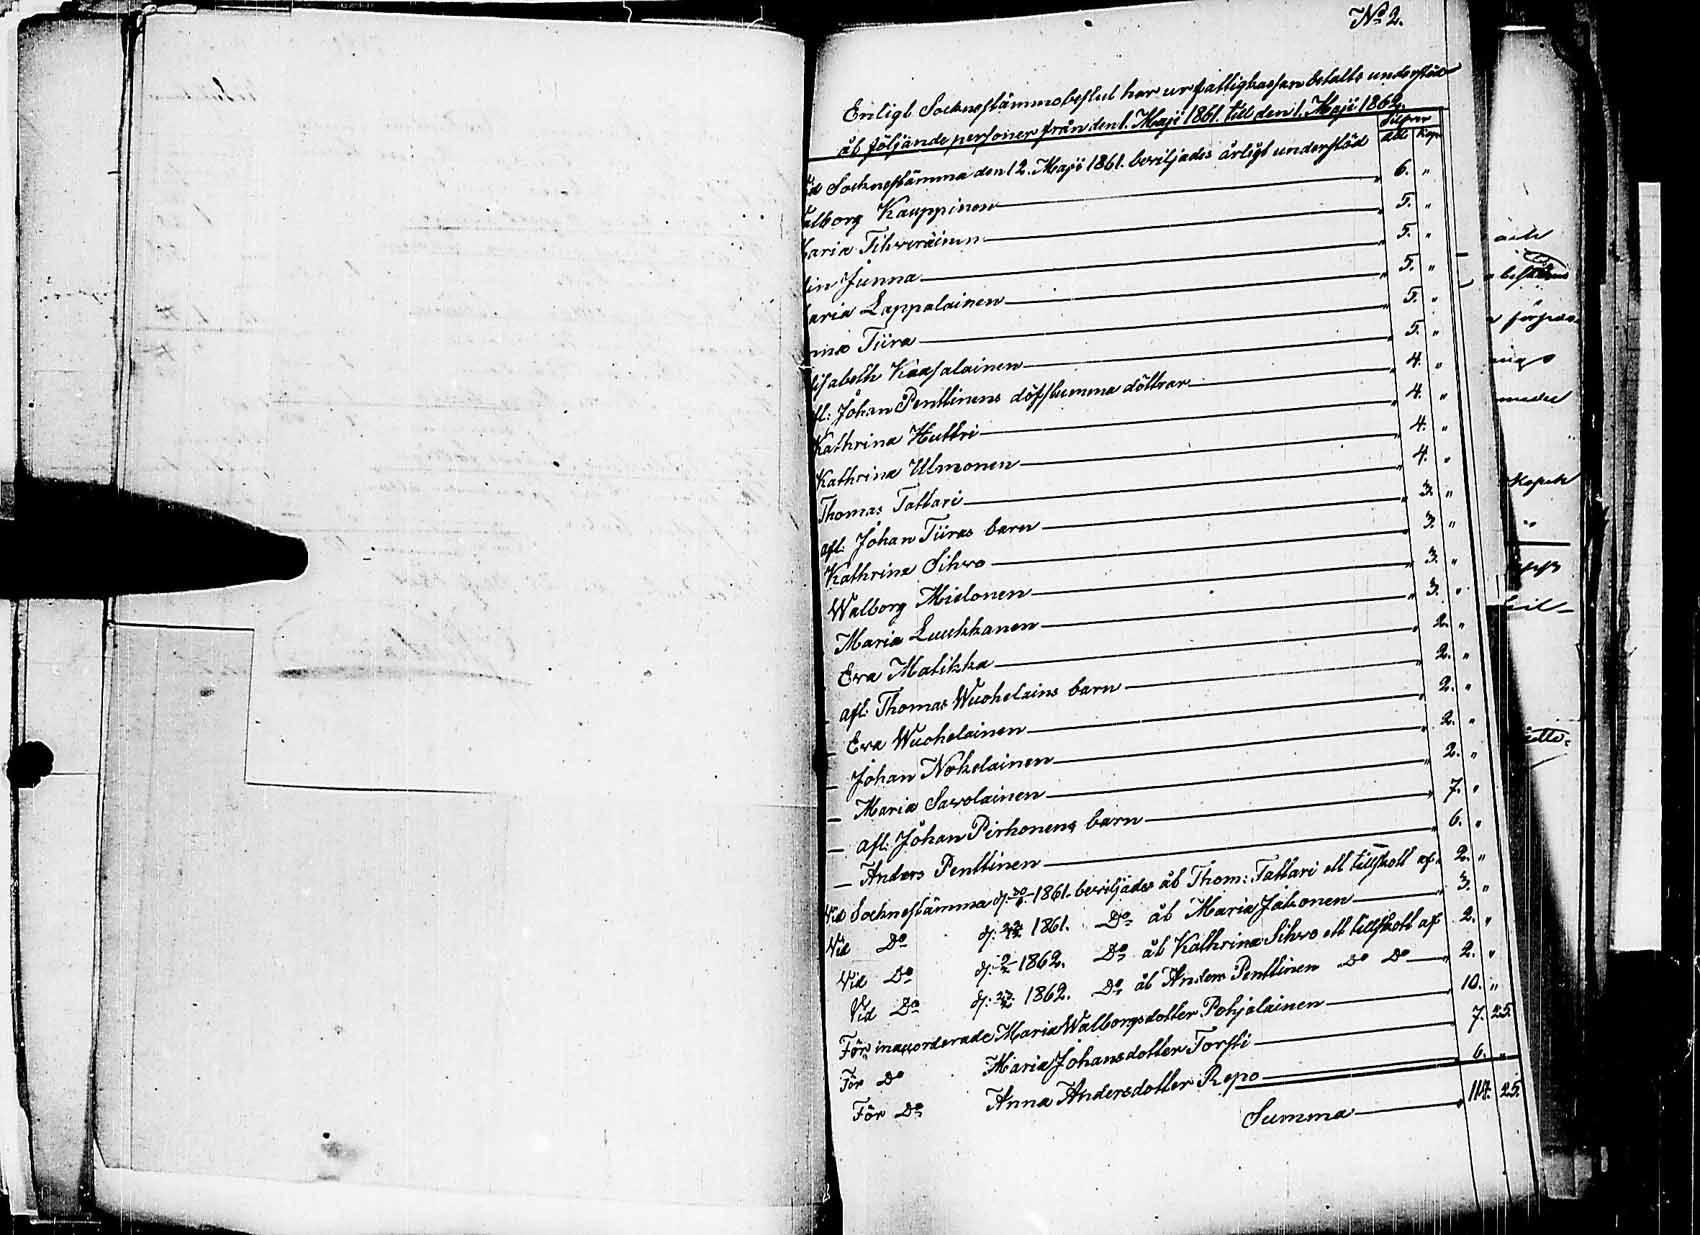 No 2.
Enligt Socknestämmobeslut har ur fattigkassan betalts understöd
åt följande personer från den 1. Maji 1861. till den 1. Maji 1862.
Silfver
Kop
Socknestämma den 12. Maji 1861. beviljades årligt understöd
alborg Kauppinen 6. "
aria Tihveräinen 5. "
in Junna 5. "
aria Lappalainen 5. "
nna Tiira 5. "
lisabeth Kaasalainen 5. "
fl: Johan Penttinens döfstumma döttrar 4. "
Kathrina Huttri 4. "
Kathrina Ulmonen 4. "
Thomas Tattari 4. "
afl: Johan Tiiras barn 3. "
Kathrina Sihvo 3. "
Walborg Mielonen 3. "
Maria Luukkanen 3. "
Eva Matikka 2. "
afl: Thomas Wuohelains barn 2. "
Eva Wuohelainen 2. "
Johan Nokelainen 2. "
— Maria Savolainen 2. "
— afl: Johan Pirhonens barn 7. "
— Anders Penttinen 6. "
Vid Socknestämma 1861. beviljades åt Thom: Tattari ett tillskott af 2. "
Vid Do 1861. Do åt Maria Jakonen 3. "
Vid Do 1862. Do åt Kathrina Sihvo ett tillskott af 2. "
Vid Do 1862. Do åt Anders Penttinen Do Do 2. "
För inackorderade Maria Walborgsdotter Pohjalainen 10. "
För Do Maria Johansdotter Torsti 7. 25.
För Do Anna Andersdotter Repo 6. "
Summa 114. 25.